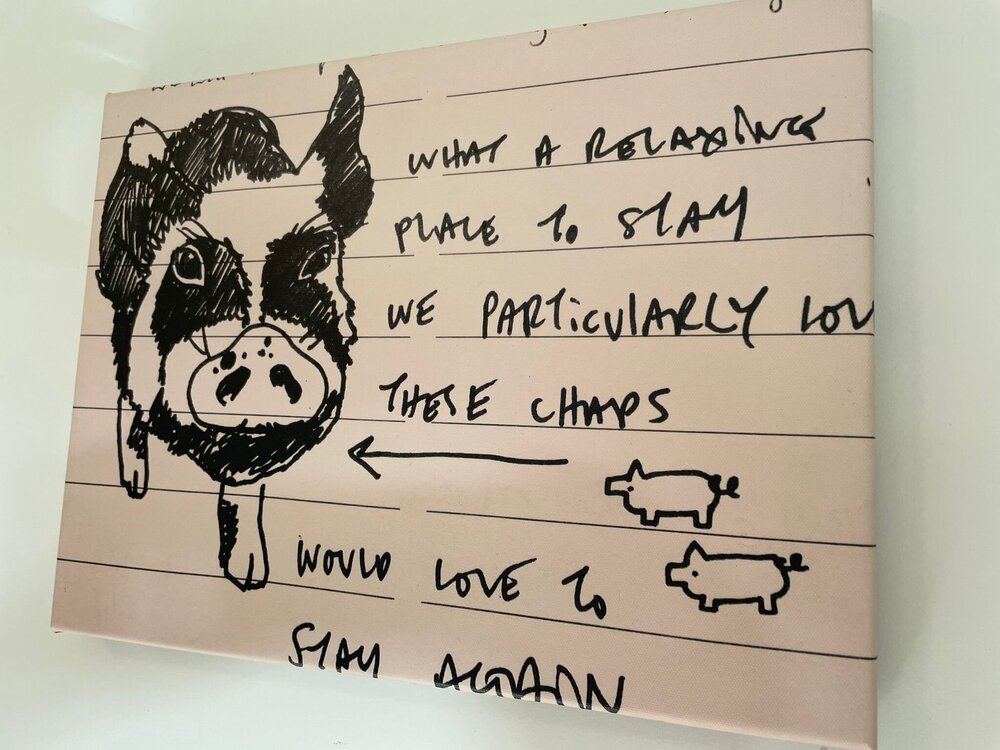 WHAT A RELAXING
PLACE To STAY
WE PARTiCULARLY LOV
THESE CHAPS
WOULD LOVE To
STAY AGAIN